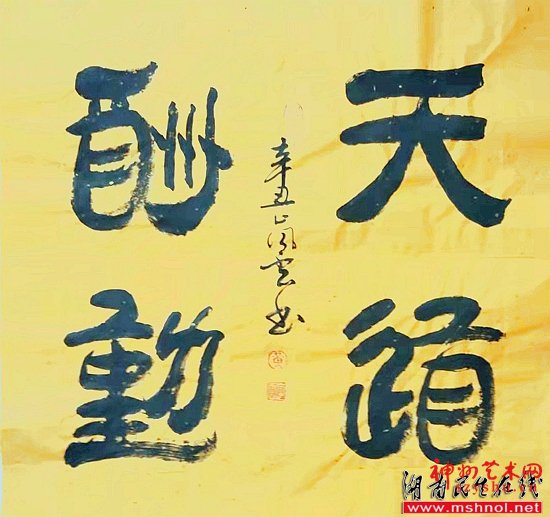 天道
酬動
辛丑
風雲书
神州艺术网
湖南民生在线
www.mshnol.net